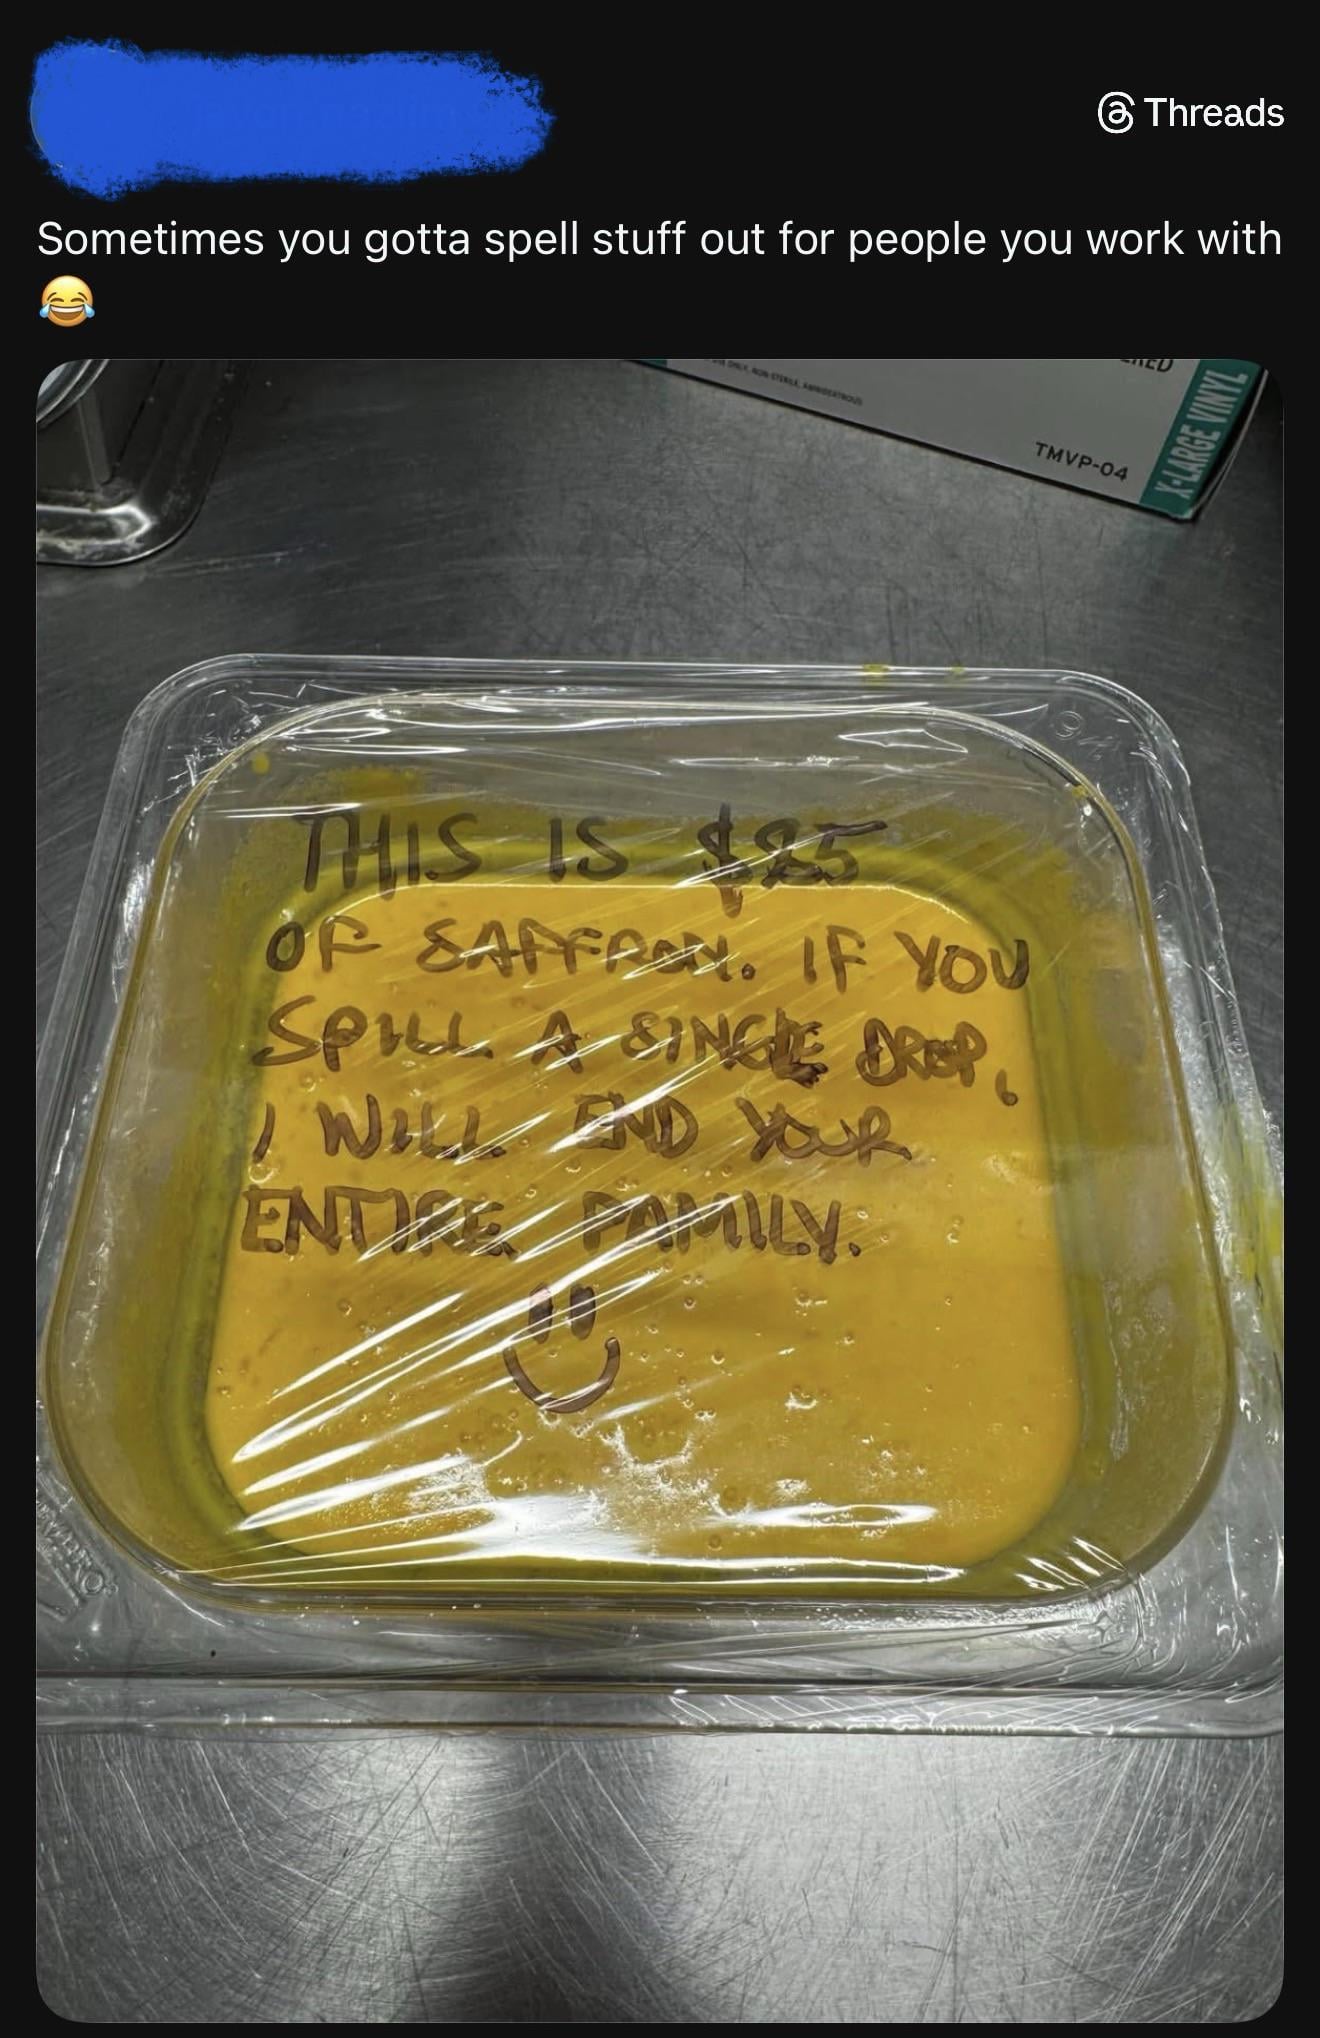 Threads
Sometimes you gotta spell stuff out for people you work with
😂
ERED
X-LARGE VINYL
TMVP-04
THIS IS $85
OF SAFFRON. IF YOU
SPILL A SINGLE DROP,
I WILL END YOUR
ENTIRE FAMILY.